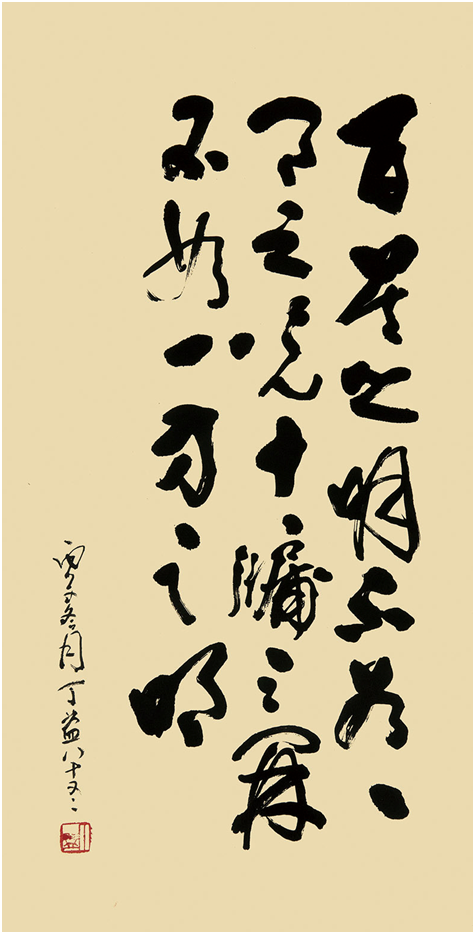 百星之明不如一
月之光十牖之開
不如一户之明
丙子冬月丁益八十又二